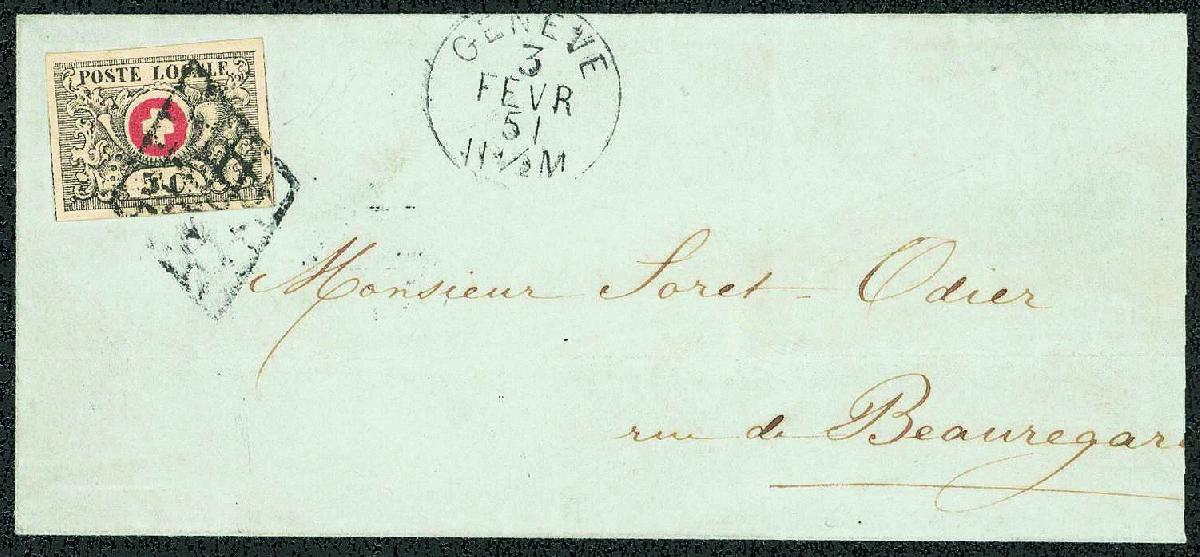 POSTE LOCALE
5 C.
GENÈVE
3
FEVR
51
11½M
Monsieur Soret-Odier
rue de Beauregar